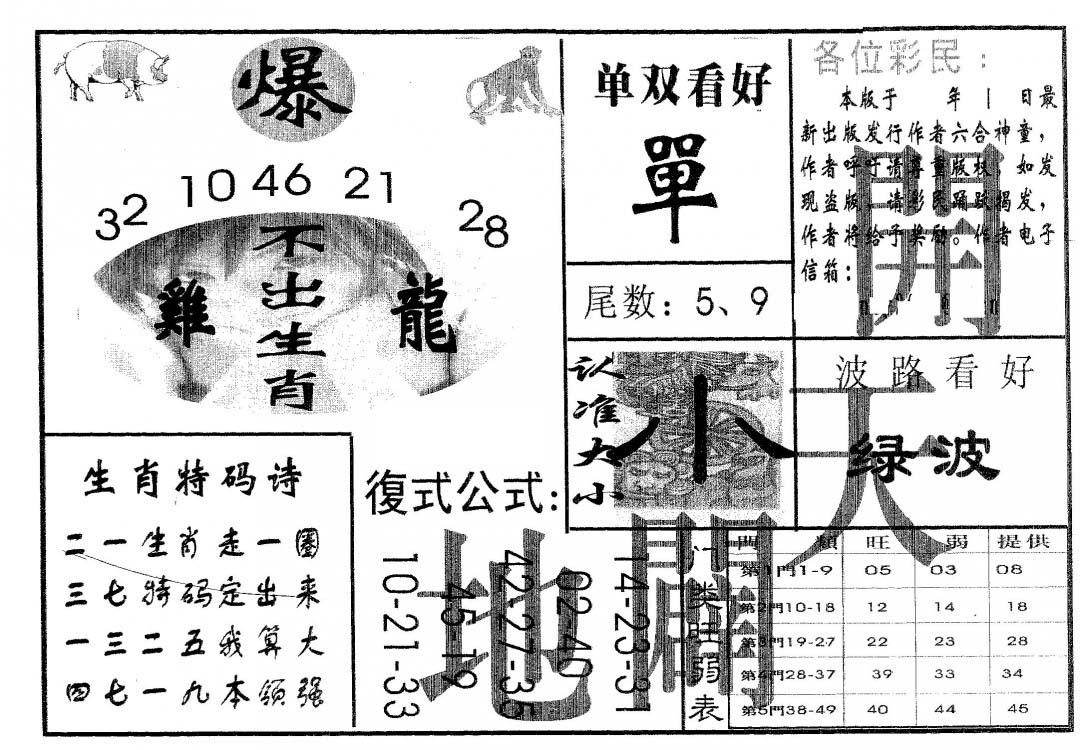 爆
32 10 46 21 28
不出生肖
雞 龍
单双看好
單
尾数：5、9
各位彩民：
本版于 年 日最
新出版发行作者六合神童，
作者呼吁请尊重版权，如发
现盗版，请彩民踊跃揭发，
作者将给予奖励。作者电子
信箱：
認准大小
小
波路看好
绿波
開
天
地
闢
生肖特码诗
二一生肖走一圈
三七特码定出来
一三二五我算大
四七一九本领强
復式公式:
14-23-31
02-40
42-27-35
45-19
10-21-33
门类旺弱表
門 類 旺 弱 提供
第1門1-9 05 03 08
第2門10-18 12 14 18
第3門19-27 22 23 28
第4門28-37 39 33 34
第5門38-49 40 44 45